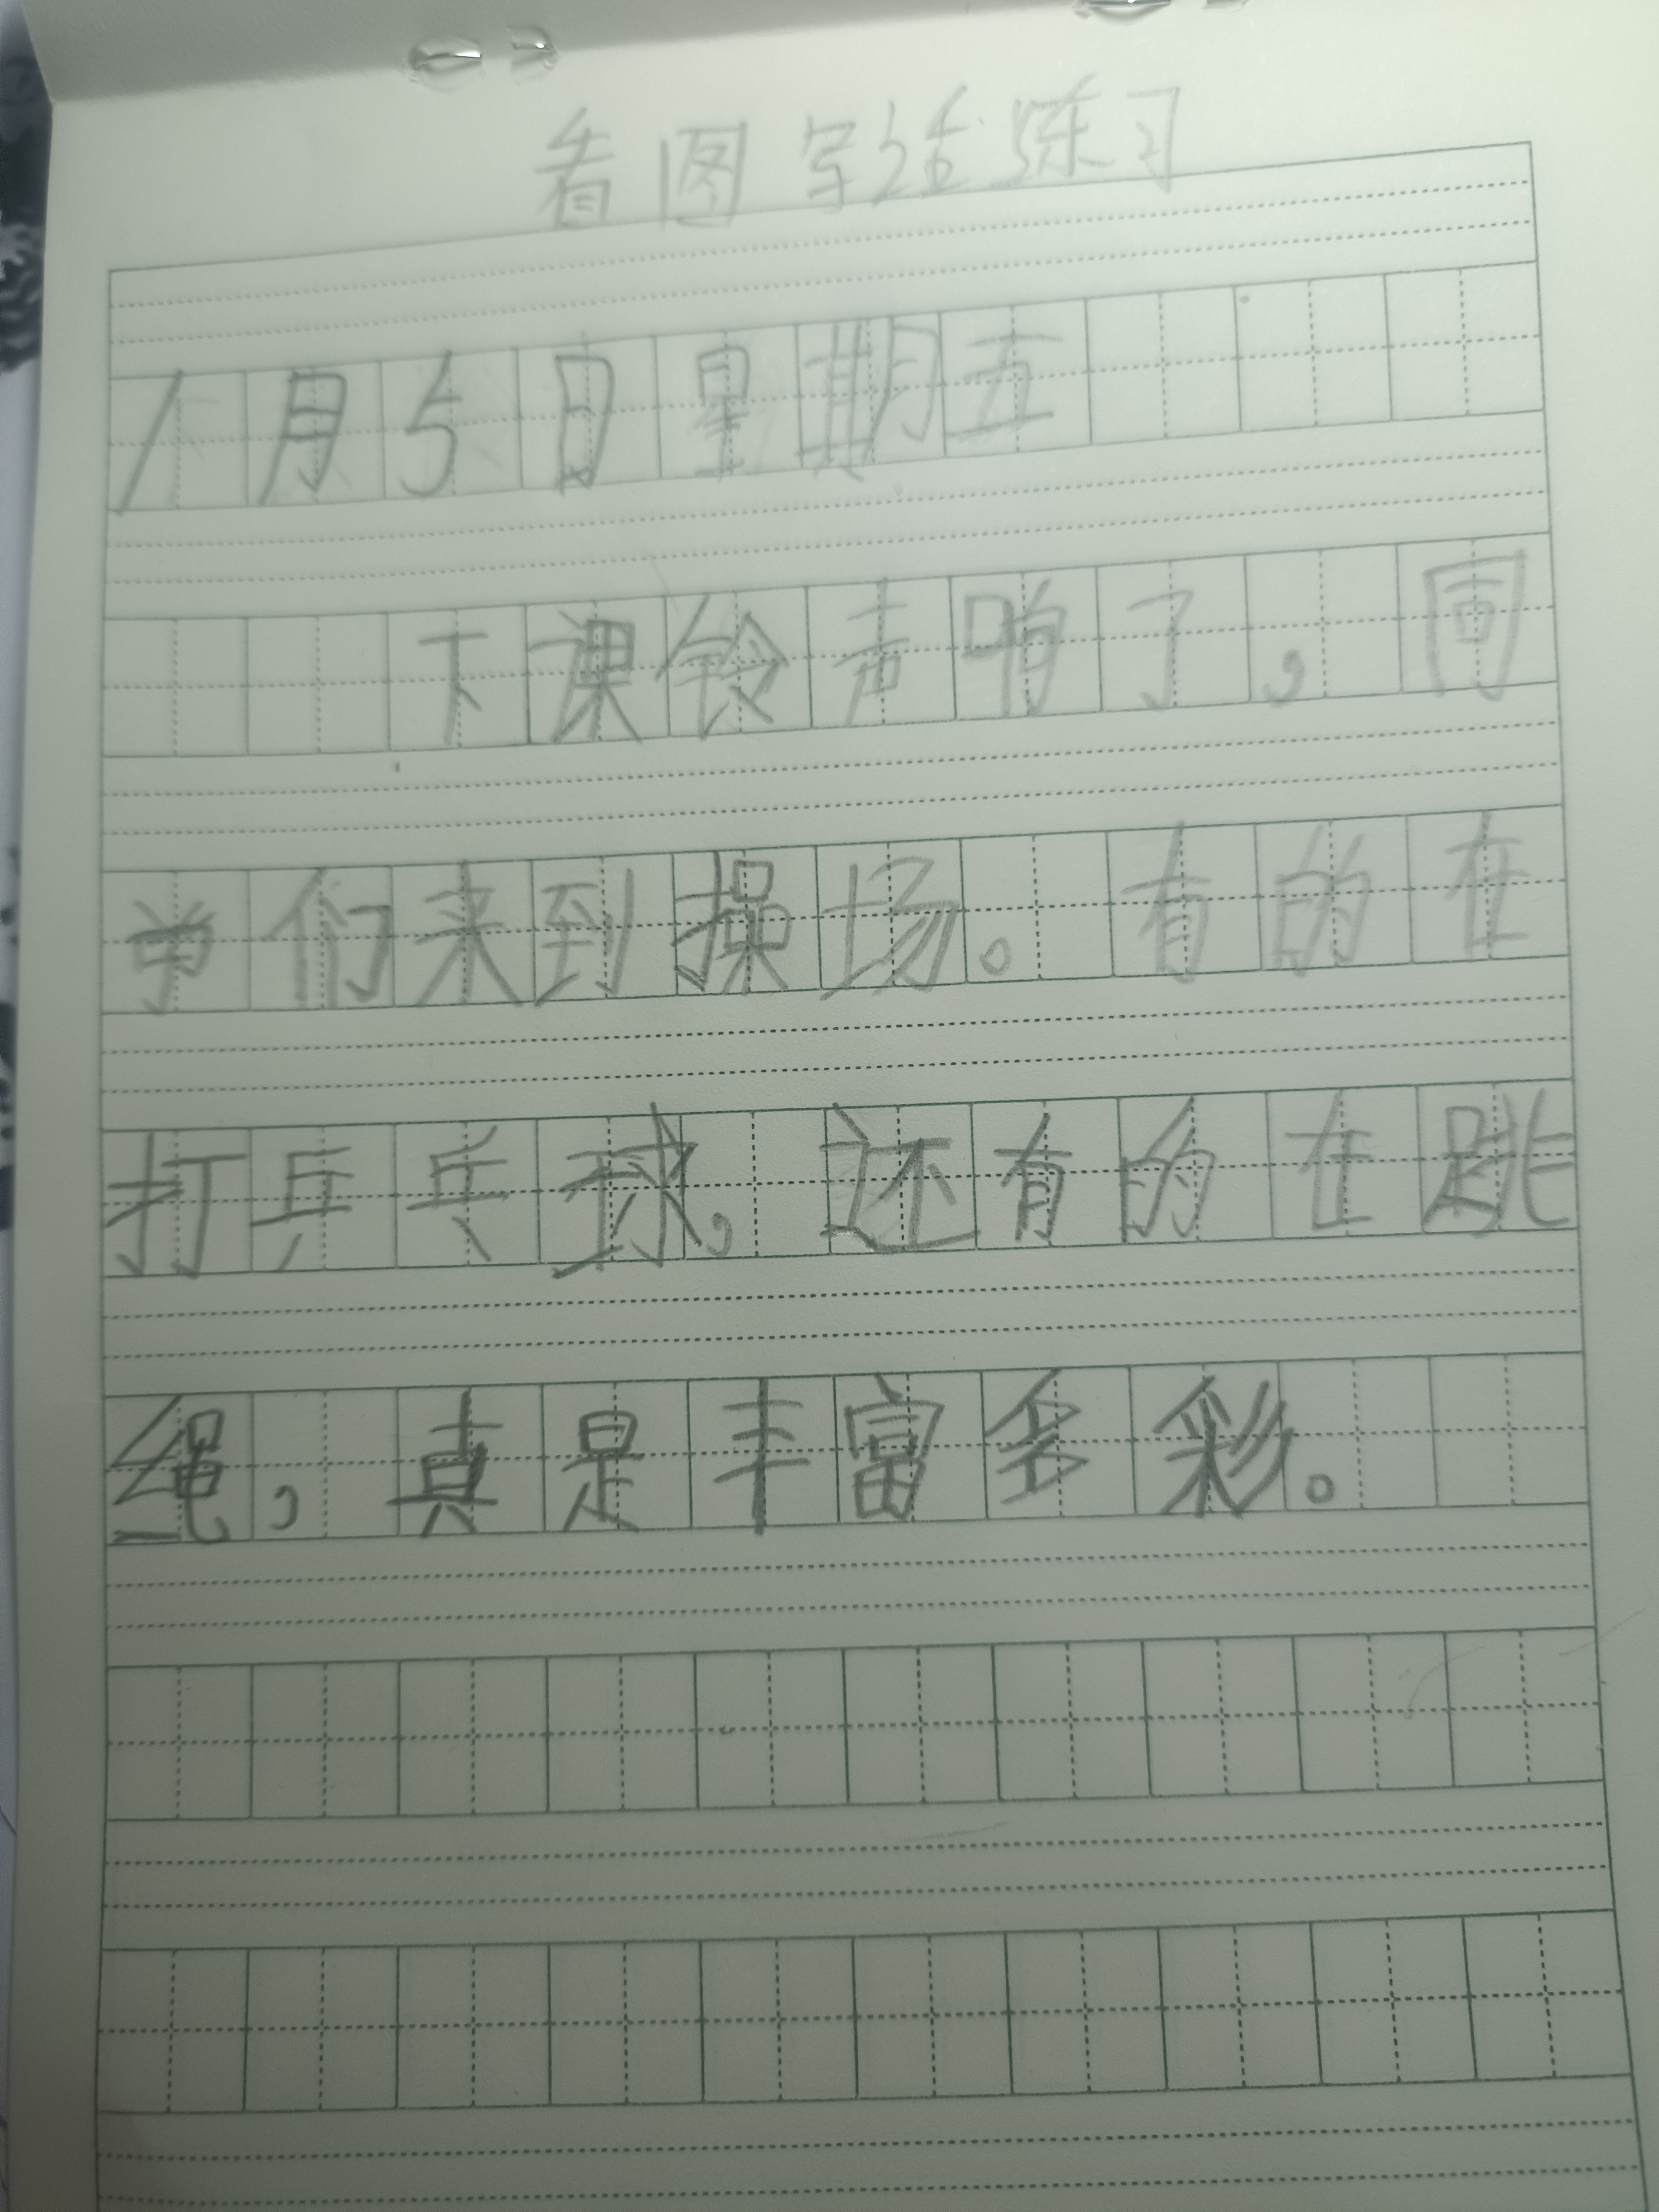 看图写话练习
1月5日星期五
下课铃声响了,同
学们来到操场。有的在
打乒乓球,还有的在跳
绳,真是丰富多彩。